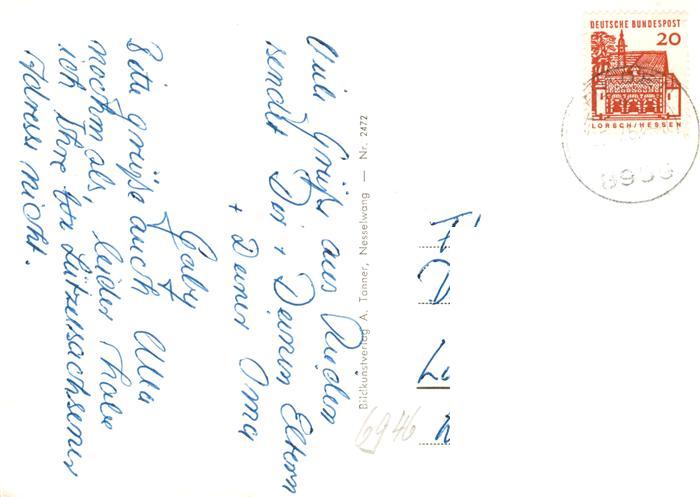 Viele Grüße aus Rieden
sendet Dir + Deinen Eltern
+ Deiner Oma
Gaby
Bitte grüße auch Ulla
nochmals, leider habe
ich Ihre Lützelsachsener
Adresse nicht.
Bildkunstverlag A. Tanner, Nesselwang — Nr. 2472
DEUTSCHE BUNDESPOST
20
LORSCH/HESSEN
6946